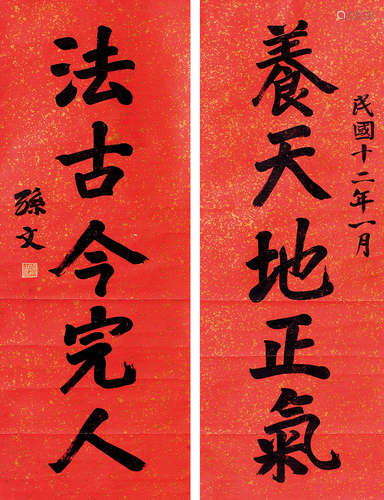 民國十二年一月
養天地正氣
法古今完人
孫文